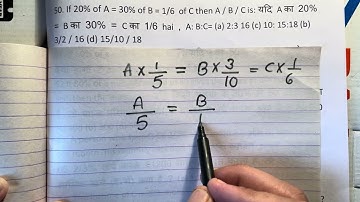 50. If 20% of A = 30% of B = 1/6 of C then A / B / C is: यदि A का 20%
= B का 30% = C का 1/6 hai , A: B:C= (a) 2:3 16 (c) 10: 15:18 (b)
3/2 / 16 (d) 15/10 / 18
A × 1/5 = B × 3/10 = C × 1/6
A/5 = B/